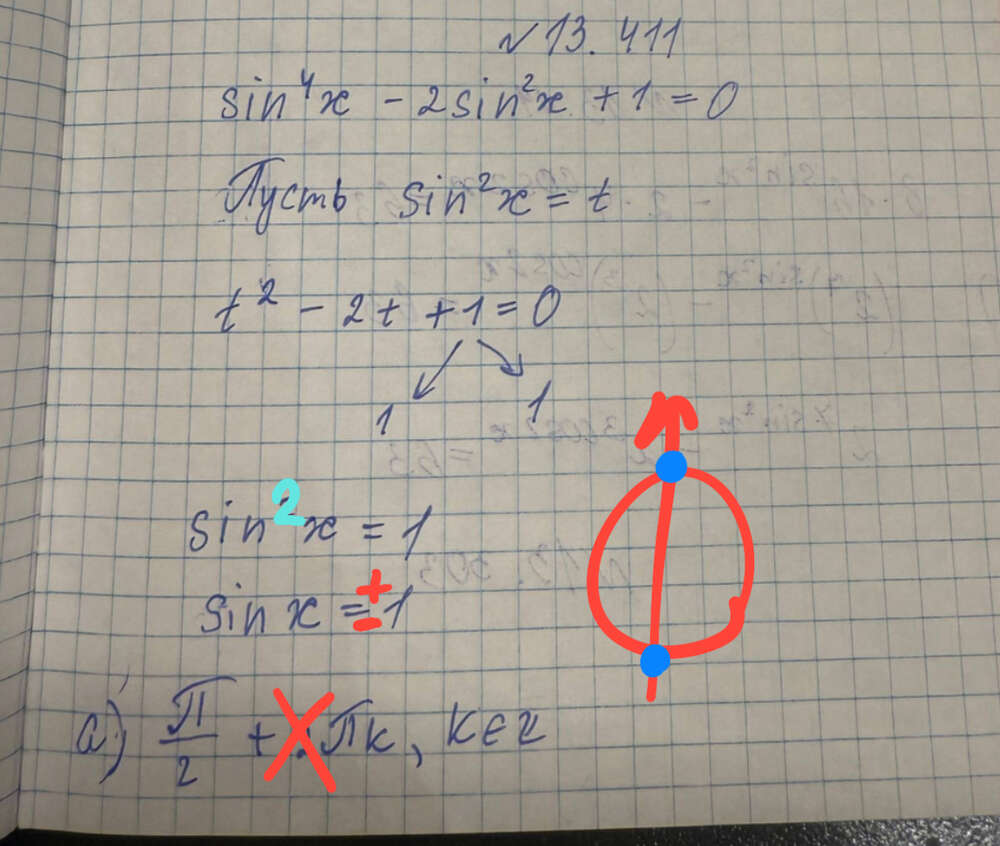 √13. 411
sin⁴x - 2sin²x + 1 = 0
Пусть sin²x = t
t² - 2t + 1 = 0
1 1
sin²x = 1
sin x = ±1
а) π/2 + πk, k∈z